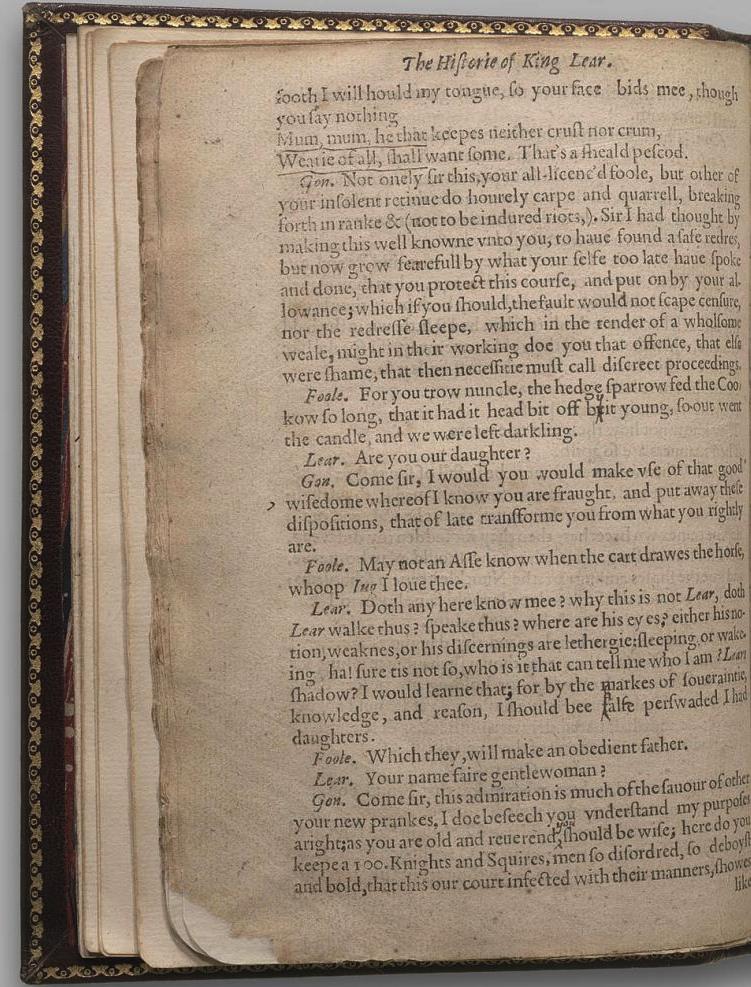 The Historie of King Lear.
sooth I will hould my tongue, so your face bids mee, though
you say nothing
Mum, mum, he that keepes neither crust nor crum,
Wearie of all, shall want some. That's a sheald pescod.
Gon. Not onely sir this, your all-licenc'd foole, but other of
your insolent retinue do hourely carpe and quarrell, breaking
forth in ranke & (not to be indured riots,). Sir I had thought by
making this well knowne vnto you, to haue found a safe redres,
but now grow fearefull by what your selfe too late haue spoke
and done, that you protect this course, and put on by your al-
lowance; which if you should, the fault would not scape censure,
nor the redresse sleepe, which in the tender of a wholsome
weale, might in their working doe you that offence, that else
were shame, that then necessitie must call discreet proceedings.
Foole. For you trow nuncle, the hedge sparrow fed the Coo
kow so long, that it had it head bit off by it young, so out went
the candle, and we were left darkling.
Lear. Are you our daughter?
Gon. Come sir, I would you would make vse of that good
wisedome whereof I know you are fraught, and put away these
dispositions, that of late transforme you from what you rightly
are.
Foole. May not an Asse know when the cart drawes the horse,
whoop Iug I loue thee.
Lear. Doth any here know mee? why this is not Lear, doth
Lear walke thus? speake thus? where are his eyes? either his no-
tion, weaknes, or his discernings are lethergie; sleeping, or wake-
ing, ha! sure tis not so, who is it that can tell me who I am? Lears
shadow? I would learne that; for by the markes of soueraintie,
knowledge, and reason, I should bee false perswaded I had
daughters.
Foole. Which they, will make an obedient father.
Lear. Your name faire gentlewoman?
Gon. Come sir, this admiration is much of the sauour of other
your new prankes, I doe beseech you vnderstand my purposes
aright; as you are old and reuerend, you should be wise; here do you
keepe a 100. Knights and Squires, men so disordred, so deboyst
and bold, that this our court infected with their manners, showes
like